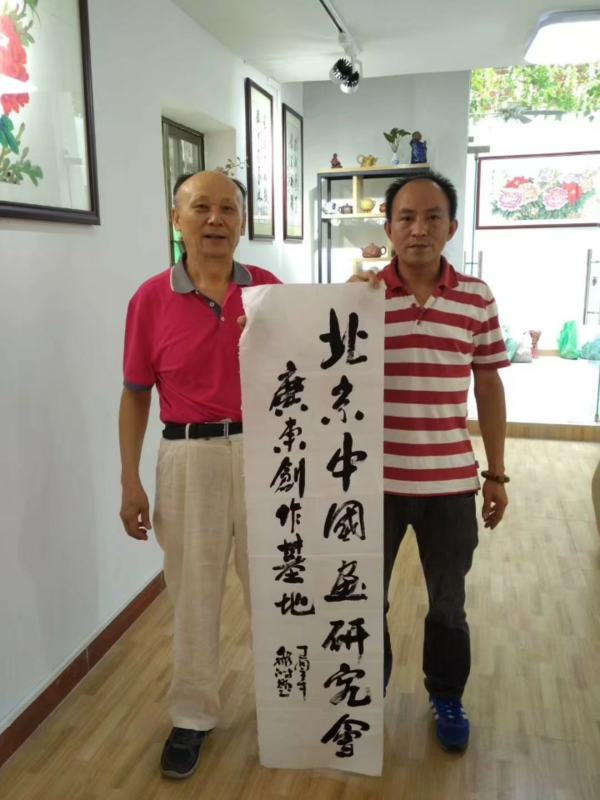 北京中國畫研究會
廣東創作基地
丁酉